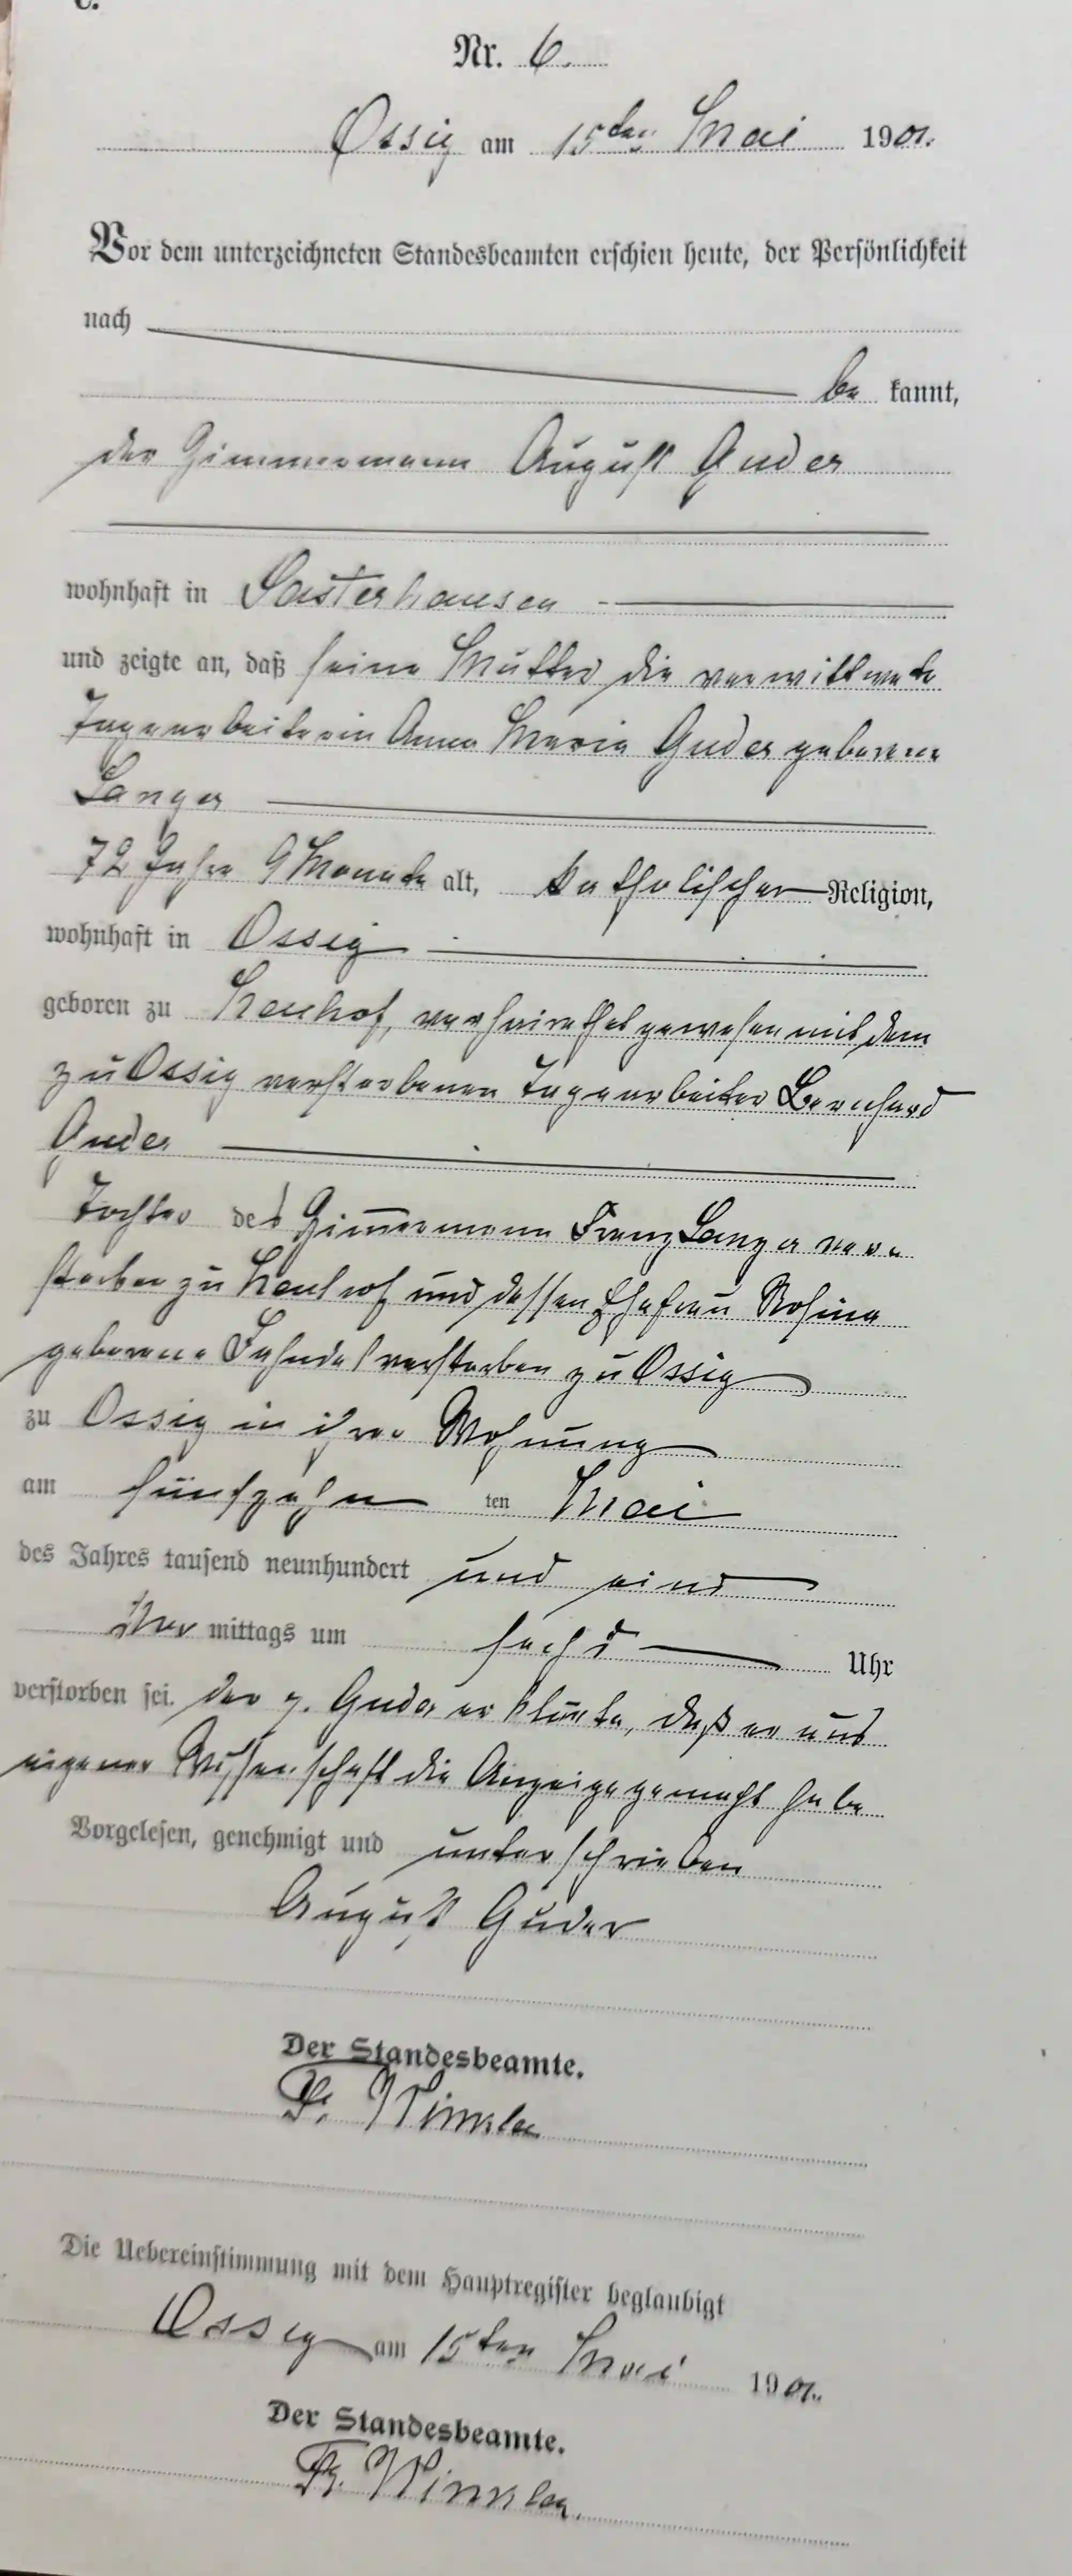 C.
Nr. 6.
Ossig am 15ten Mai 1901.
Vor dem unterzeichneten Standesbeamten erschien heute, der Persönlichkeit
nach
be kannt,
der Zimmermann August Guder
wohnhaft in Sasterhausen
und zeigte an, daß seine Mutter die verwittwete
Tagearbeiterin Anna Maria Guder geborene
Langer
72 Jahre 9 Monate alt, katholischer Religion,
wohnhaft in Ossig
geboren zu Neuhof, verheirathet gewesen mit dem
zu Ossig verstorbenen Tagearbeiter Bernhard
Guder
Tochter des Zimmermann Franz Langer ver-
storben zu Neuhof und dessen Ehefrau Rosina
geborene verstorben zu Ossig
zu Ossig in ihrer Wohnung
am fünfzehn ten Mai
des Jahres tausend neunhundert und eins
Vor mittags um sechs Uhr
verstorben sei. der p. Guder erklärte, daß er aus
eigener Wissenschaft die Anzeige gemacht habe
Vorgelesen, genehmigt und unterschrieben
August Guder
Der Standesbeamte.
Winkler
Die Uebereinstimmung mit dem Hauptregister beglaubigt
Ossig am 15ten Mai 1901.
Der Standesbeamte.
Winkler